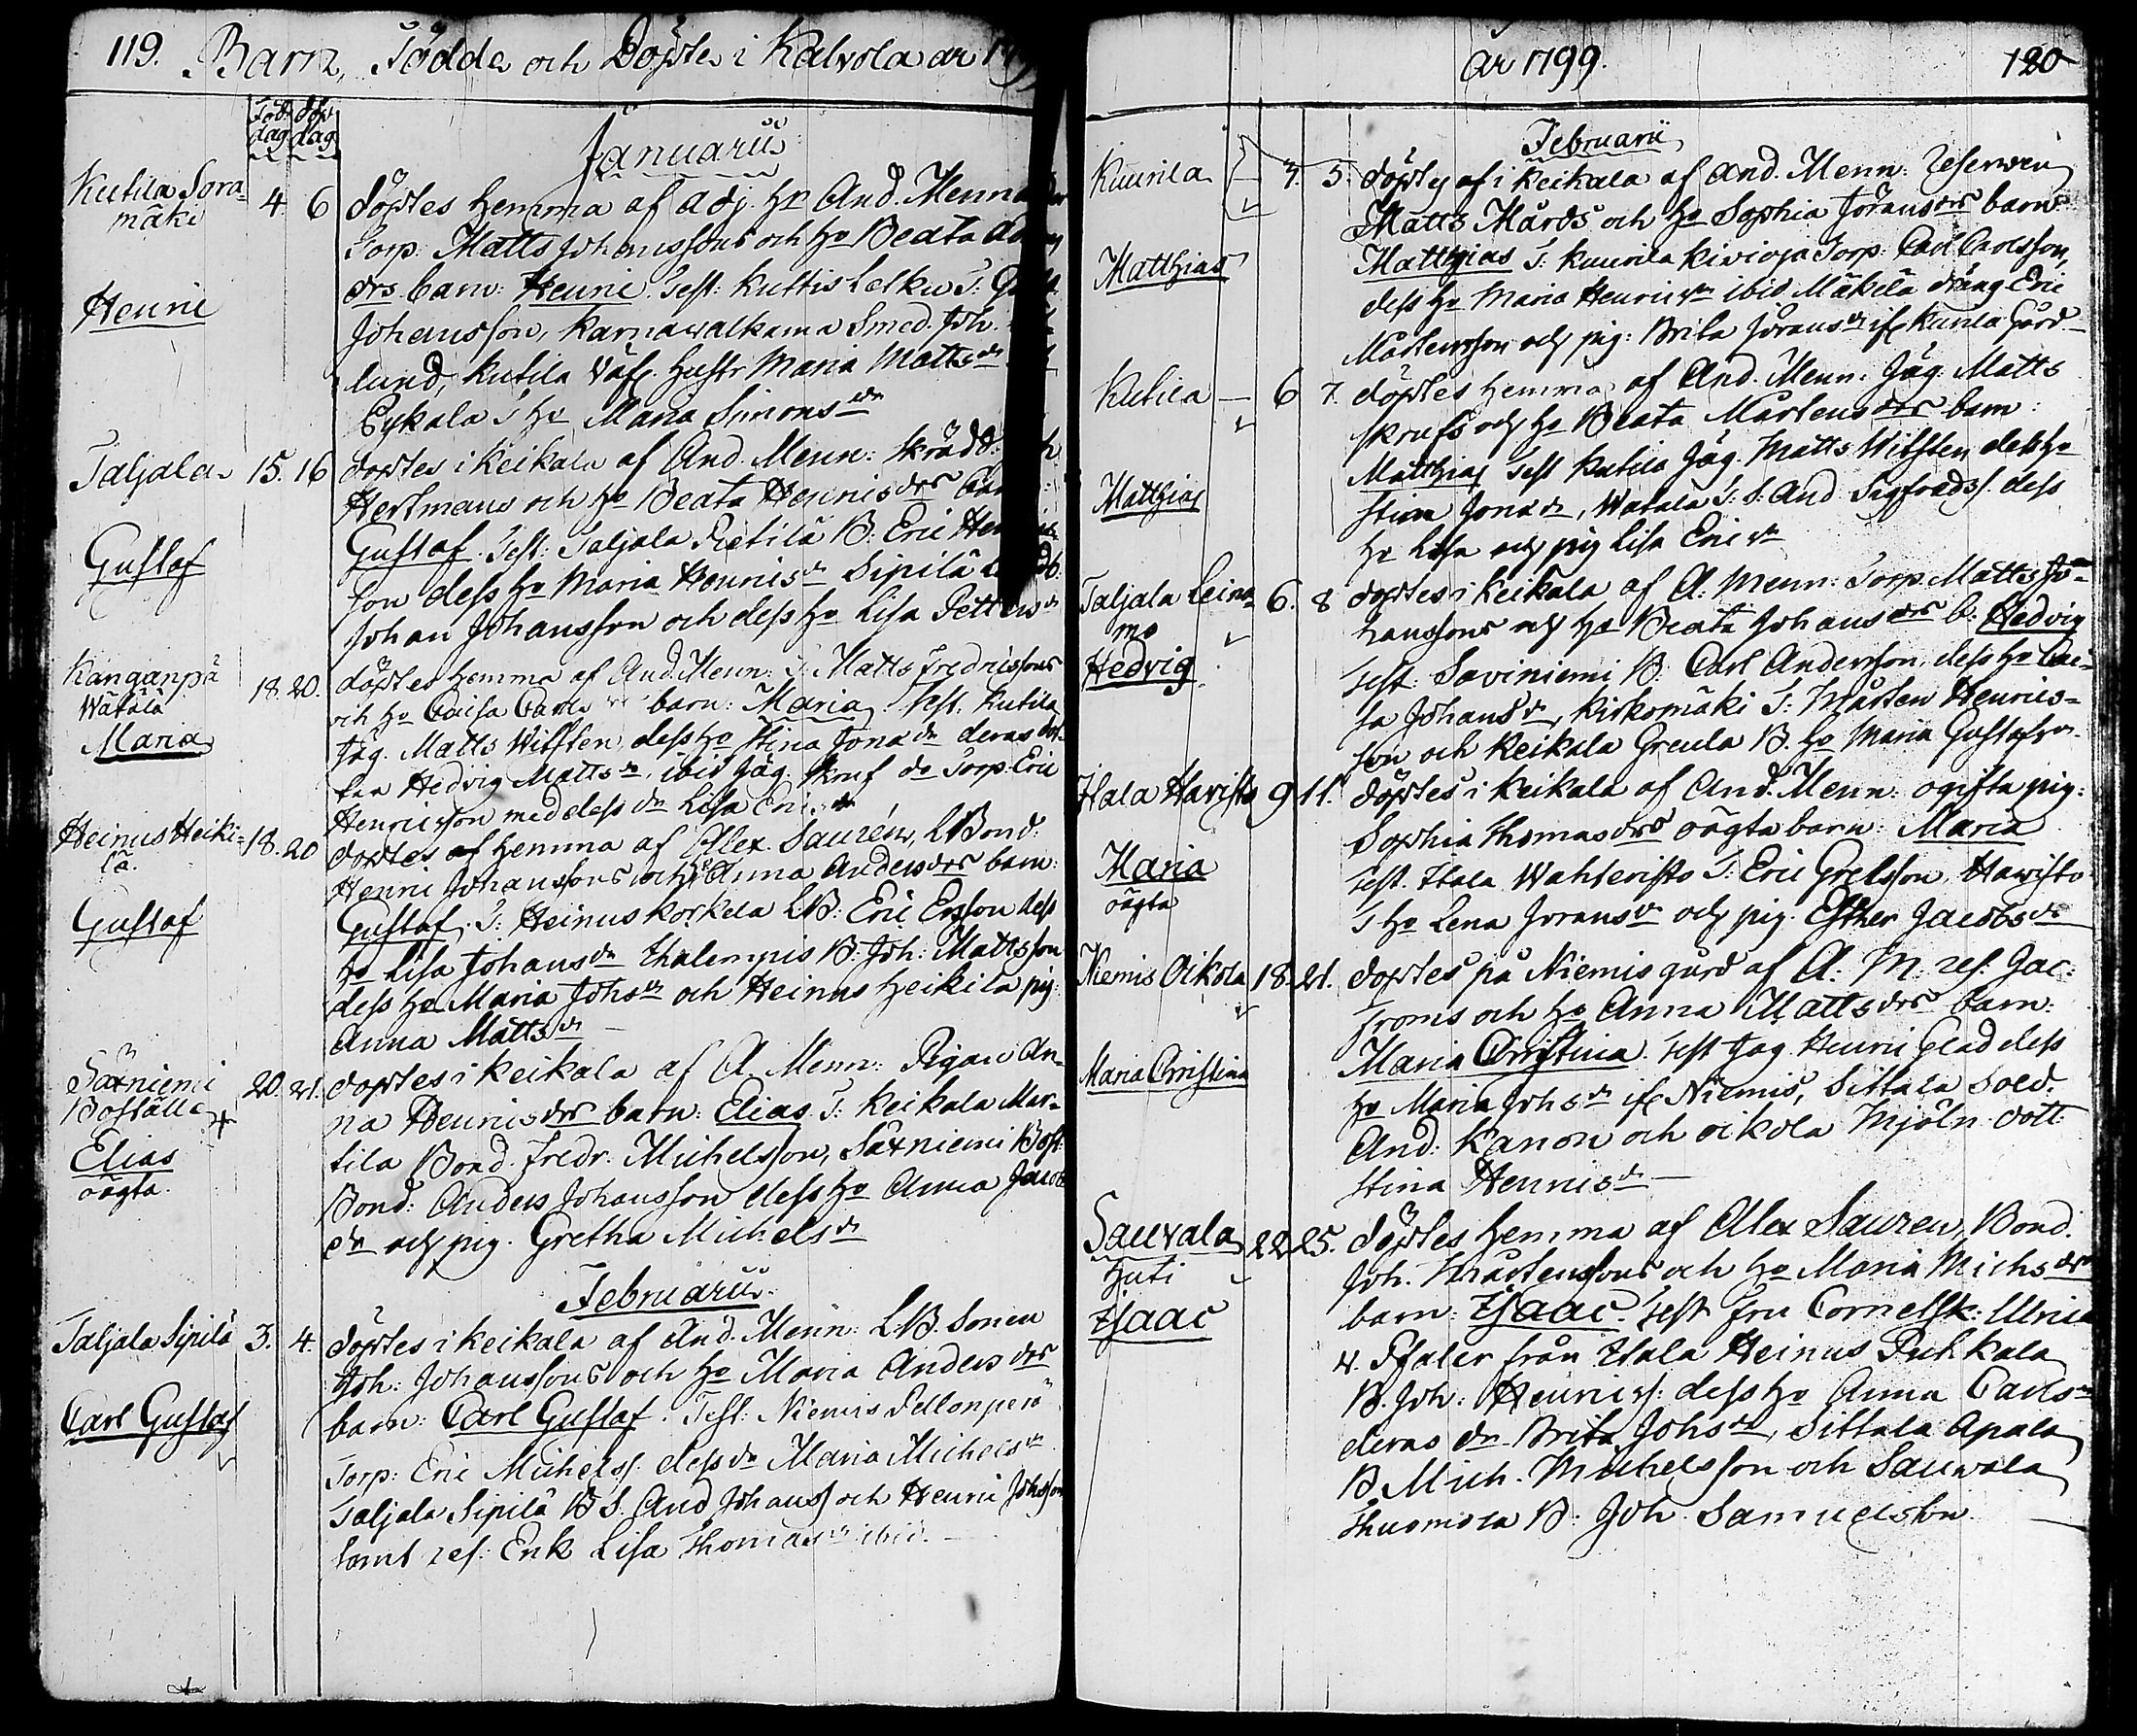 119. Barn, Födde och Döpte i Kalvola år 179
Föd. döp
dag dag
Januarii
Kutila Sora-
mäki
4. 6 döptes hemma af Adj. Hr And. Menna
Torp. Matts Johanssons och ho Beata
drs barn: Henric. Test: Kuttis Lelku T:
Henric
Johansson, Karnawalkama Smed. Joh.
lund, Kutila Väf. Hustr Maria Matts dr
Eykala T ho Maria Simons dr
Taljala 15. 16 döptes i Keikala af And. Menn: Skrädd:
Hertmans och ho Beata Henrics drs
Gustaf
Gustaf. Test: Taljala Pietilä B: Eric
son dess ho Maria Henrics dr Sipilä
Johan Johansson och dess ho Lisa Petters dr
Kanganpä
Watala
Maria
18. 20. döptes hemma af And. Menn: T: Matts Fredricssons
och ho Caisa Carls barn: Maria. Test. Kutila
Jäg. Matts Wilsten, dess ho Stina Jona dr deras dot-
ter Hedvig Matts dr, ibid Jäg. Skruf do Torp. Eric
Henricsson med dess dr Lisa Eri dr
Heinus Heiki-
lä.
Gustaf
18. 20 döptes af hemma af Alex. Saurén, LBond.
Henric Johanssons och ho Anna Anders drs barn:
Gustaf. T: Heinus Korkela LB: Eric Ersson dess
ho Lisa Johans dr Ihalempis B: Joh: Mattsson
dess ho Maria Johs dr och Heinus Heikila pig.
Anna Matts dr
Säxniemi
Boställe
Elias
oägta.
20. 21. döptes i Keikala af A. Menn: Pigan An-
na Henrics drs barn: Elias T: Keikala Mar-
tila Bond. Fredr. Michelsson, Säxniemi Bost.
Bond: Anders Johansson dess ho Anna Jacobs
dr och pig. Gretha Michels dr
Februarii
Taljala Sipilä 3. 4. döptes i Keikala af And. Menn: LB. Sonen
Joh: Johanssons och ho Maria Anders drs
Carl Gustaf
barn: Carl Gustaf. Test: Niemis Pellonperä
Torp: Eric Michelss. dess dr Maria Michels dr
Taljala Sipilä B S. And Johanss och Henric Johsson
samt ref: Enk Lisa Thomas dr ibid.
År 1799. 120
Februarii
Kuurila 3. 5. döptes af i Keikala af And. Menn: Reserven
Matts Hårds och ho Sophia Jörans drs barn
Matthias
Matthias T: Kuurila Kivioja Torp. Carl Carlsson,
dess ho Maria Henrics dr ibid Mäkelä dräng Eric
Mårtensson och pig: Brita Jörans dr if Kurila Gård
Kutila 6 7. döptes hemma af And. Menn. Jäg. Matts
Skrufs och ho Beata Mårtens drs barn:
Matthias
Matthias Test Kutila Jäg. Matts Wilsten dess ho
Stina Jona dr, Watala T: S: And Sigfredss. dess
ho Lisa och pig Lisa Eric dr
Taljala Leine-
mo
Hedvig
6. 8 döptes i Keikala af A: Menn: Torp. Matts Jo-
hanssons och ho Beata Johans drs b: Hedvig
Test: Saviniemi B: Carl Andersson, dess ho Cai-
sa Johans dr, Kirksmäki T: Mårten Henrics-
son och Keikala Greula B. ho Maria Gustafs dr
Itala Haristo 9 11. döptes i Keikala af And. Menn: ogifta pig:
Sophia Thomas drs oägta barn: Maria
Maria
oägta
Test. Itala Wahteristo T: Eric Grelsson, Haristo
T ho Lena Jorans dr och pig. Esther Jacobs dr
Niemis Oikola 18. 21. döptes på Niemis gård af A: M: ref. Jac:
Froms och ho Anna Matts drs barn:
Maria Christina
Maria Christina. Test Jag. Henric Glad dess
ho Maria Johs dr if Niemis, Sittala Sold.
And: Kanon och Oikola Mjöln. dott.
Stina Henrics dr
Sauvala
Huti
Isaac
22 25. döptes hemma af Alex Sauren, Bond.
Joh. Mårtenssons och ho Maria Michs drs
barn: Isaac. Test Fru Cornetsk: Ulrica
v. Pfaler från Itala Heinus Puhkala
B. Joh: Henrics: dess ho Anna Carls dr
deras dr Brita Johs dr, Sittala Apala
B Mich. Michelsson och Sauvala
Thuomola B: Joh. Samuelsson